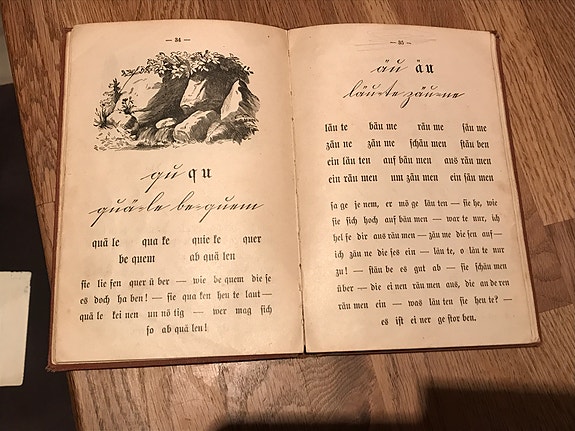 — 34 —
qu qu
quä-le be-quem
quä le qua ke quie ke quer
be quem ab quä len
sie lie fen quer ü ber — wie be quem die se
es doch ha ben! — sie qua ken heu te laut —
quä le kei nen un nö tig — wer mag sich
so ab quä len!
— 35 —
äu äu
läu-te zäu-ne
läu te bäu me räu me säu me
zäu ne zäu me schäu men stäu ben
ein läu ten auf bäu men aus räu men
ein räu men um zäu men ein säu men
sa ge je nem, er mö ge läu ten — sie he, wie
sie sich hoch auf bäu men — war te nur, ich
hel fe dir aus räu men — zäu me die sen auf —
ich zäu ne die ses ein — läu te, o läu te nur
zu! — stäu be es gut ab — sie schäu men
über — die ei nen räu men aus, die an de ren
räu men ein — was läu ten sie heu te? —
es ist ei ner ge stor ben.